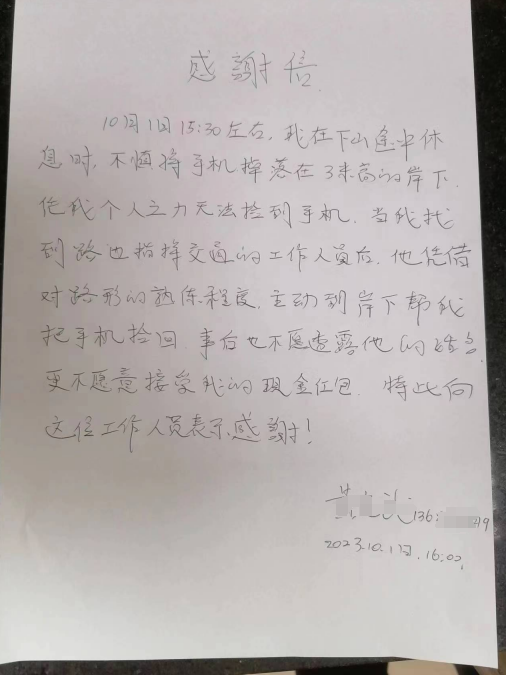 感謝信
10月1日15:30左右,我在下山途中休
息时,不慎将手机掉落在3米高的岸下.
凭我个人之力无法捡到手机.当我找
到路边指挥交通的工作人员后.他凭借
对路形的熟练程度.主动到岸下帮我
把手机捡回.事后也不愿透露他的姓名
更不愿意接受我的现金红包.特此向
这位工作人员表示感謝!
黄 136 49
2023.10.1日.16:02.